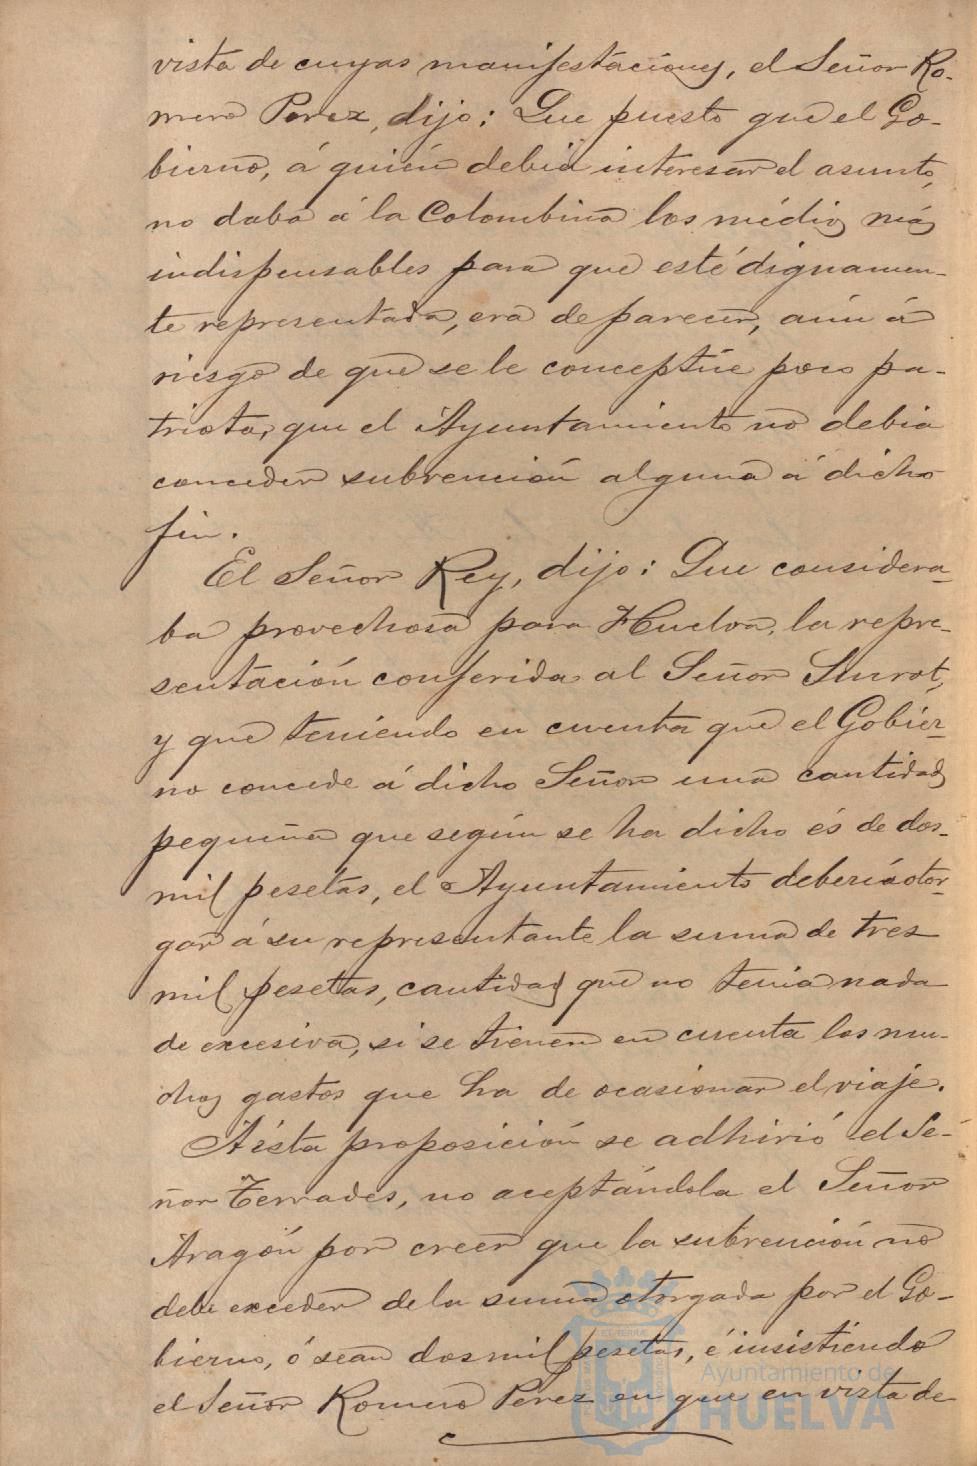 vista de cuyas manifestaciones, el Señor Ro-
mero Perez, dijo: Que puesto que el Go-
bierno, á quién debia interesar el asunto,
no daba á la Colombina los médios más
indispensables para que esté dignamen-
te representada, era de parecer, aún á
riesgo de que se le conceptúe poco pa-
triota, que el Ayuntamiento no debia
conceder subvención alguna á dicho
fin.
El Señor Rey, dijo: Que considera-
ba provechosa para Huelva, la repre-
sentación conferida al Señor Siurot,
y que teniendo en cuenta que el Gobier-
no concede á dicho Señor una cantidad
pequeña que según se ha dicho és de dos-
mil pesetas, el Ayuntamiento debería otor-
gar á su representante la suma de tres
mil pesetas, cantidad que no tenia nada
de excesiva, si se tienen en cuenta los mu-
chos gastos que ha de ocasionar el viaje.
A ésta proposición se adhirió el Se-
ñor Terrades, no aceptándola el Señor
Aragón por creer que la subvención no
debe exceder de la suma otorgada por el Go-
bierno, ó sean dos mil pesetas, é insistiendo
el Señor Romero Pérez en que en vista de
Ayuntamiento de
HUELVA